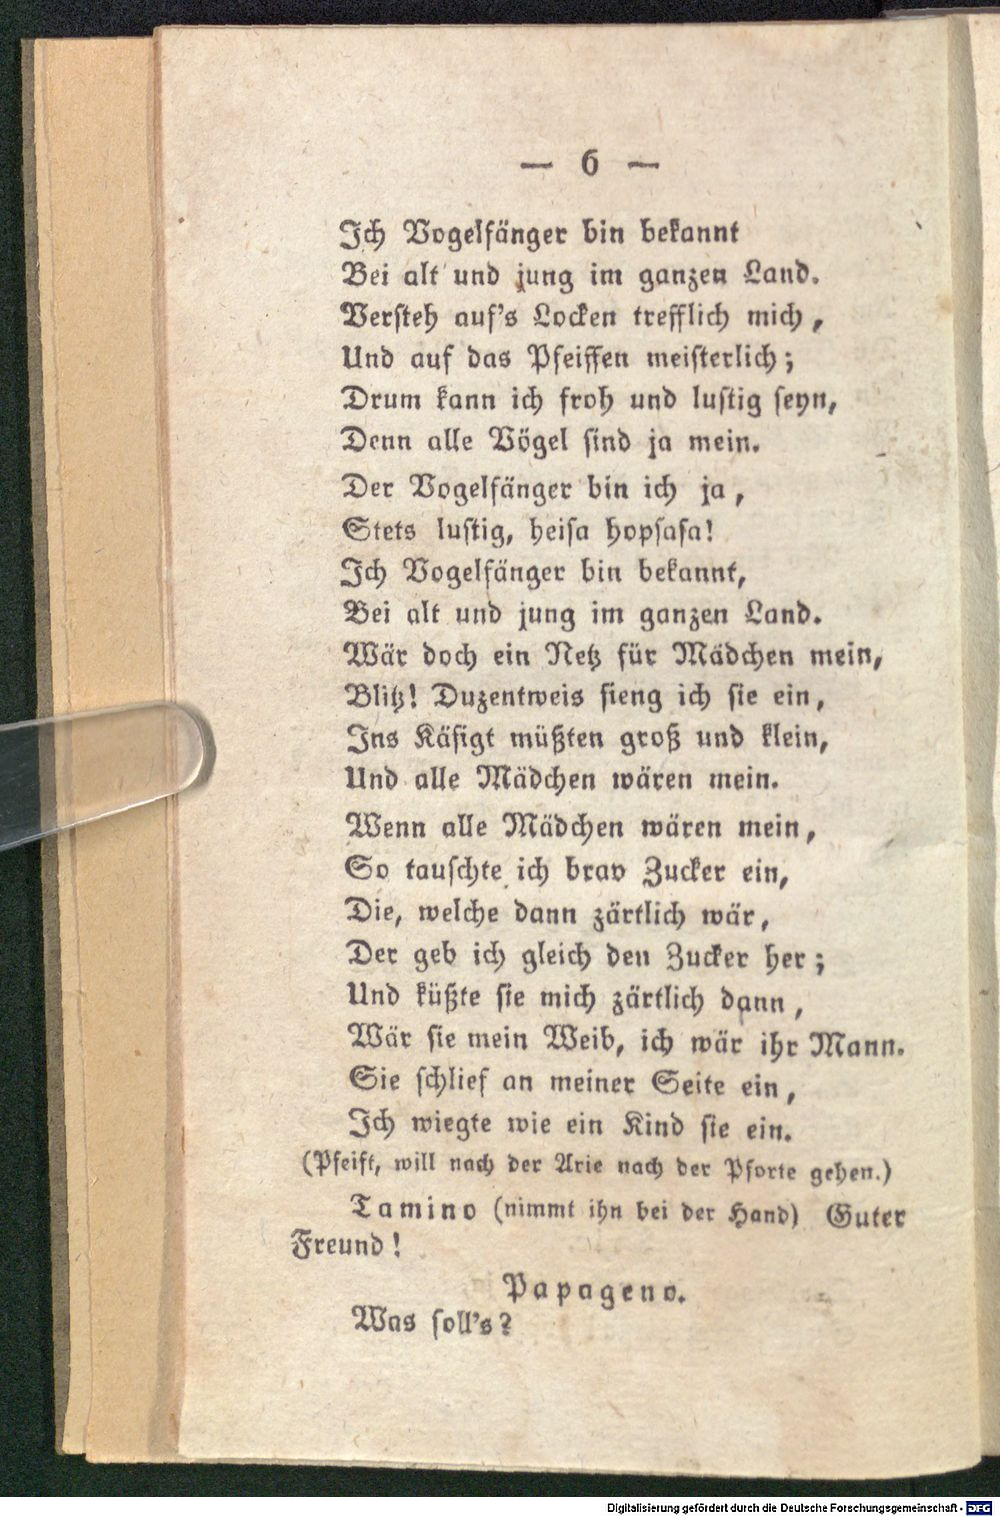 — 6 —
Ich Vogelfänger bin bekannt
Bei alt und jung im ganzen Land.
Versteh auf's Locken trefflich mich,
Und auf das Pfeiffen meisterlich;
Drum kann ich froh und lustig seyn,
Denn alle Vögel sind ja mein.
Der Vogelfänger bin ich ja,
Stets lustig, heisa hopsasa!
Ich Vogelfänger bin bekannt,
Bei alt und jung im ganzen Land.
Wär doch ein Netz für Mädchen mein,
Blitz! Duzentweis fieng ich sie ein,
Ins Käfigt müßten groß und klein,
Und alle Mädchen wären mein.
Wenn alle Mädchen wären mein,
So tauschte ich brav Zucker ein,
Die, welche dann zärtlich wär,
Der geb ich gleich den Zucker her;
Und küßte sie mich zärtlich dann,
Wär sie mein Weib, ich wär ihr Mann.
Sie schlief an meiner Seite ein,
Ich wiegte wie ein Kind sie ein.
(Pfeift, will nach der Arie nach der Pforte gehen.)
Tamino (nimmt ihn bei der Hand) Guter
Freund!
Papageno.
Was soll's?
Digitalisierung gefördert durch die Deutsche Forschungsgemeinschaft - DFG